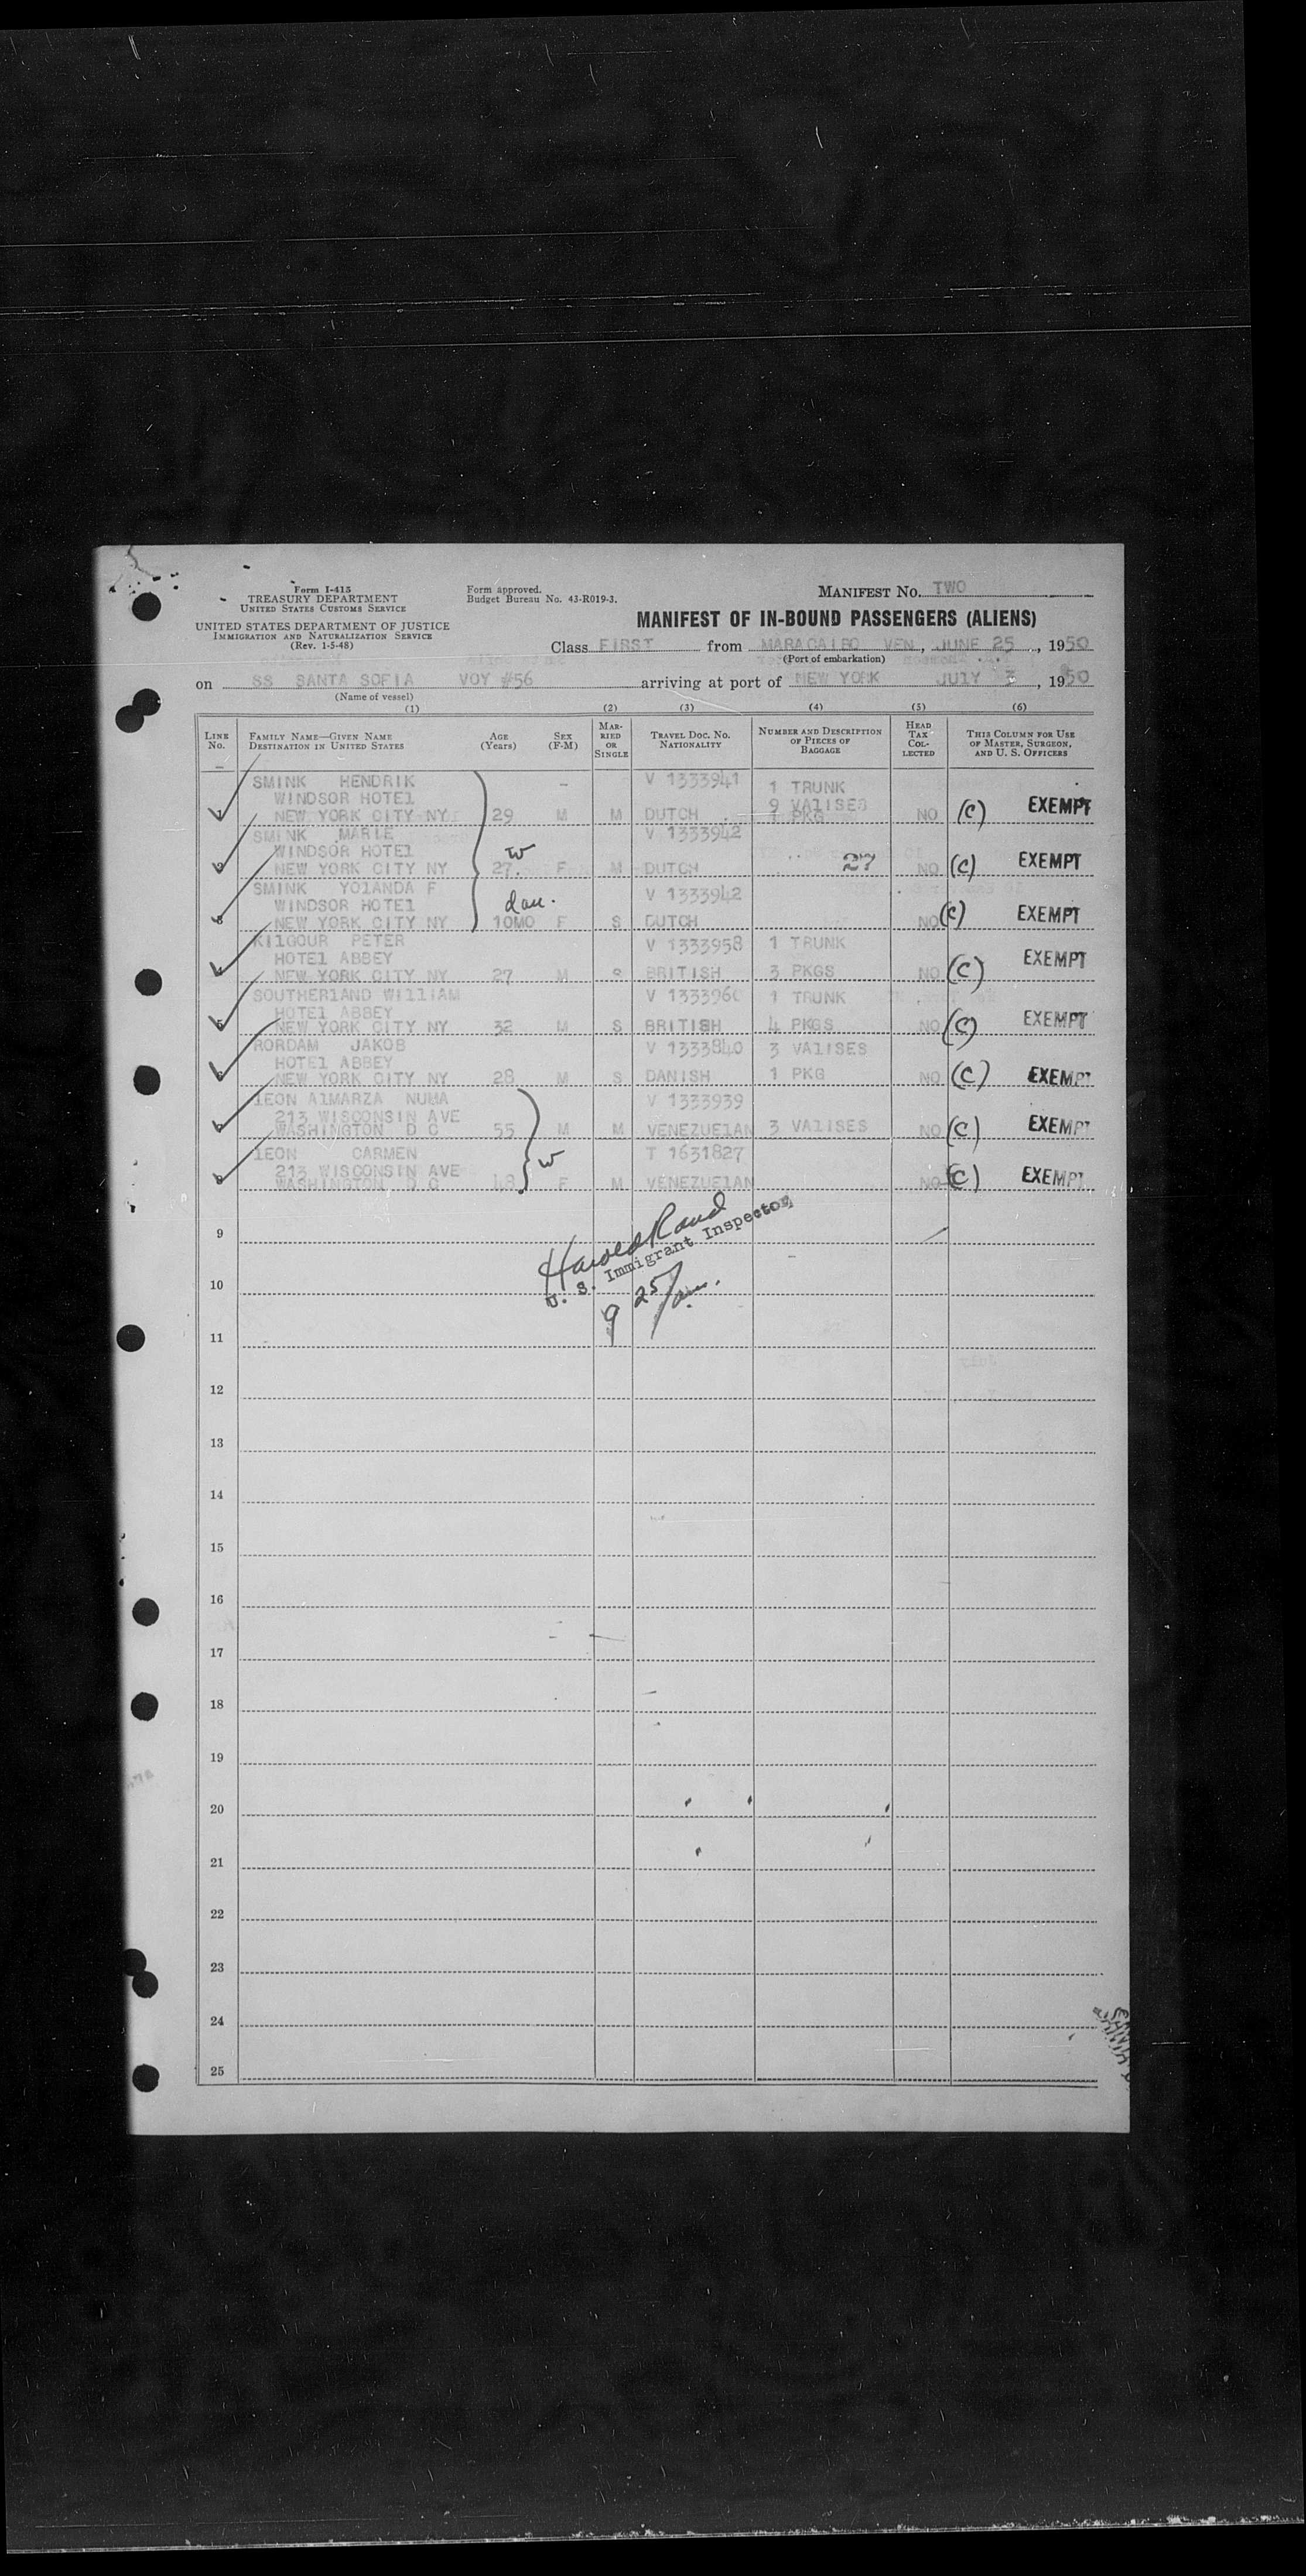 Form I-415
TREASURY DEPARTMENT
UNITED STATES CUSTOMS SERVICE
UNITED STATES DEPARTMENT OF JUSTICE
IMMIGRATION AND NATURALIZATION SERVICE
(Rev. 1-5-48)
Form approved.
Budget Bureau No. 43-R019-3.
MANIFEST No. TWO
MANIFEST OF IN-BOUND PASSENGERS (ALIENS)
Class FIRST from MARACAIBO VEN, JUNE 25, 1950
(Port of embarkation)
on SS SANTA SOFIA VOY #56 arriving at port of NEW YORK JULY 3, 1950
(Name of vessel)
(1) (2) (3) (4) (5) (6)
LINE No. FAMILY NAME—GIVEN NAME DESTINATION IN UNITED STATES AGE (Years) SEX (F-M) MARRIED OR SINGLE TRAVEL DOC. No. NATIONALITY NUMBER AND DESCRIPTION OF PIECES OF BAGGAGE HEAD TAX COLLECTED THIS COLUMN FOR USE OF MASTER, SURGEON, AND U. S. OFFICERS
SMINK HENDRIK V 1333941 1 TRUNK
WINDSOR HOTEL 9 VALISES
1 NEW YORK CITY NY 29 M M DUTCH 1 PKG NO (C) EXEMPT
SMINK MARIE V 1333942
WINDSOR HOTEL W
2 NEW YORK CITY NY 27 F M DUTCH 27 NO (C) EXEMPT
SMINK YOLANDA F V 1333942
WINDSOR HOTEL dau.
3 NEW YORK CITY NY 10MO F S DUTCH NO (C) EXEMPT
KILGOUR PETER V 1333958 1 TRUNK
HOTEL ABBEY
4 NEW YORK CITY NY 27 M S BRITISH 3 PKGS NO (C) EXEMPT
SOUTHERLAND WILLIAM V 1333960 1 TRUNK
HOTEL ABBEY
5 NEW YORK CITY NY 32 M S BRITISH 4 PKGS NO (C) EXEMPT
RORDAM JAKOB V 1333840 3 VALISES
HOTEL ABBEY
6 NEW YORK CITY NY 28 M S DANISH 1 PKG NO (C) EXEMPT
LEON ALMARZA NUMA V 1333939
213 WISCONSIN AVE
7 WASHINGTON D C 55 M M VENEZUELAN 3 VALISES NO (C) EXEMPT
LEON CARMEN T 1631827
213 WISCONSIN AVE W
8 WASHINGTON D C 48 F M VENEZUELAN NO (C) EXEMPT
Harold Rand
U. S. Immigrant Inspector
9 25/am.
9
10
11
12
13
14
15
16
17
18
19
20
21
22
23
24
25